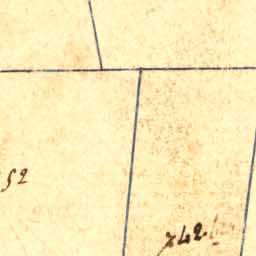 52
742